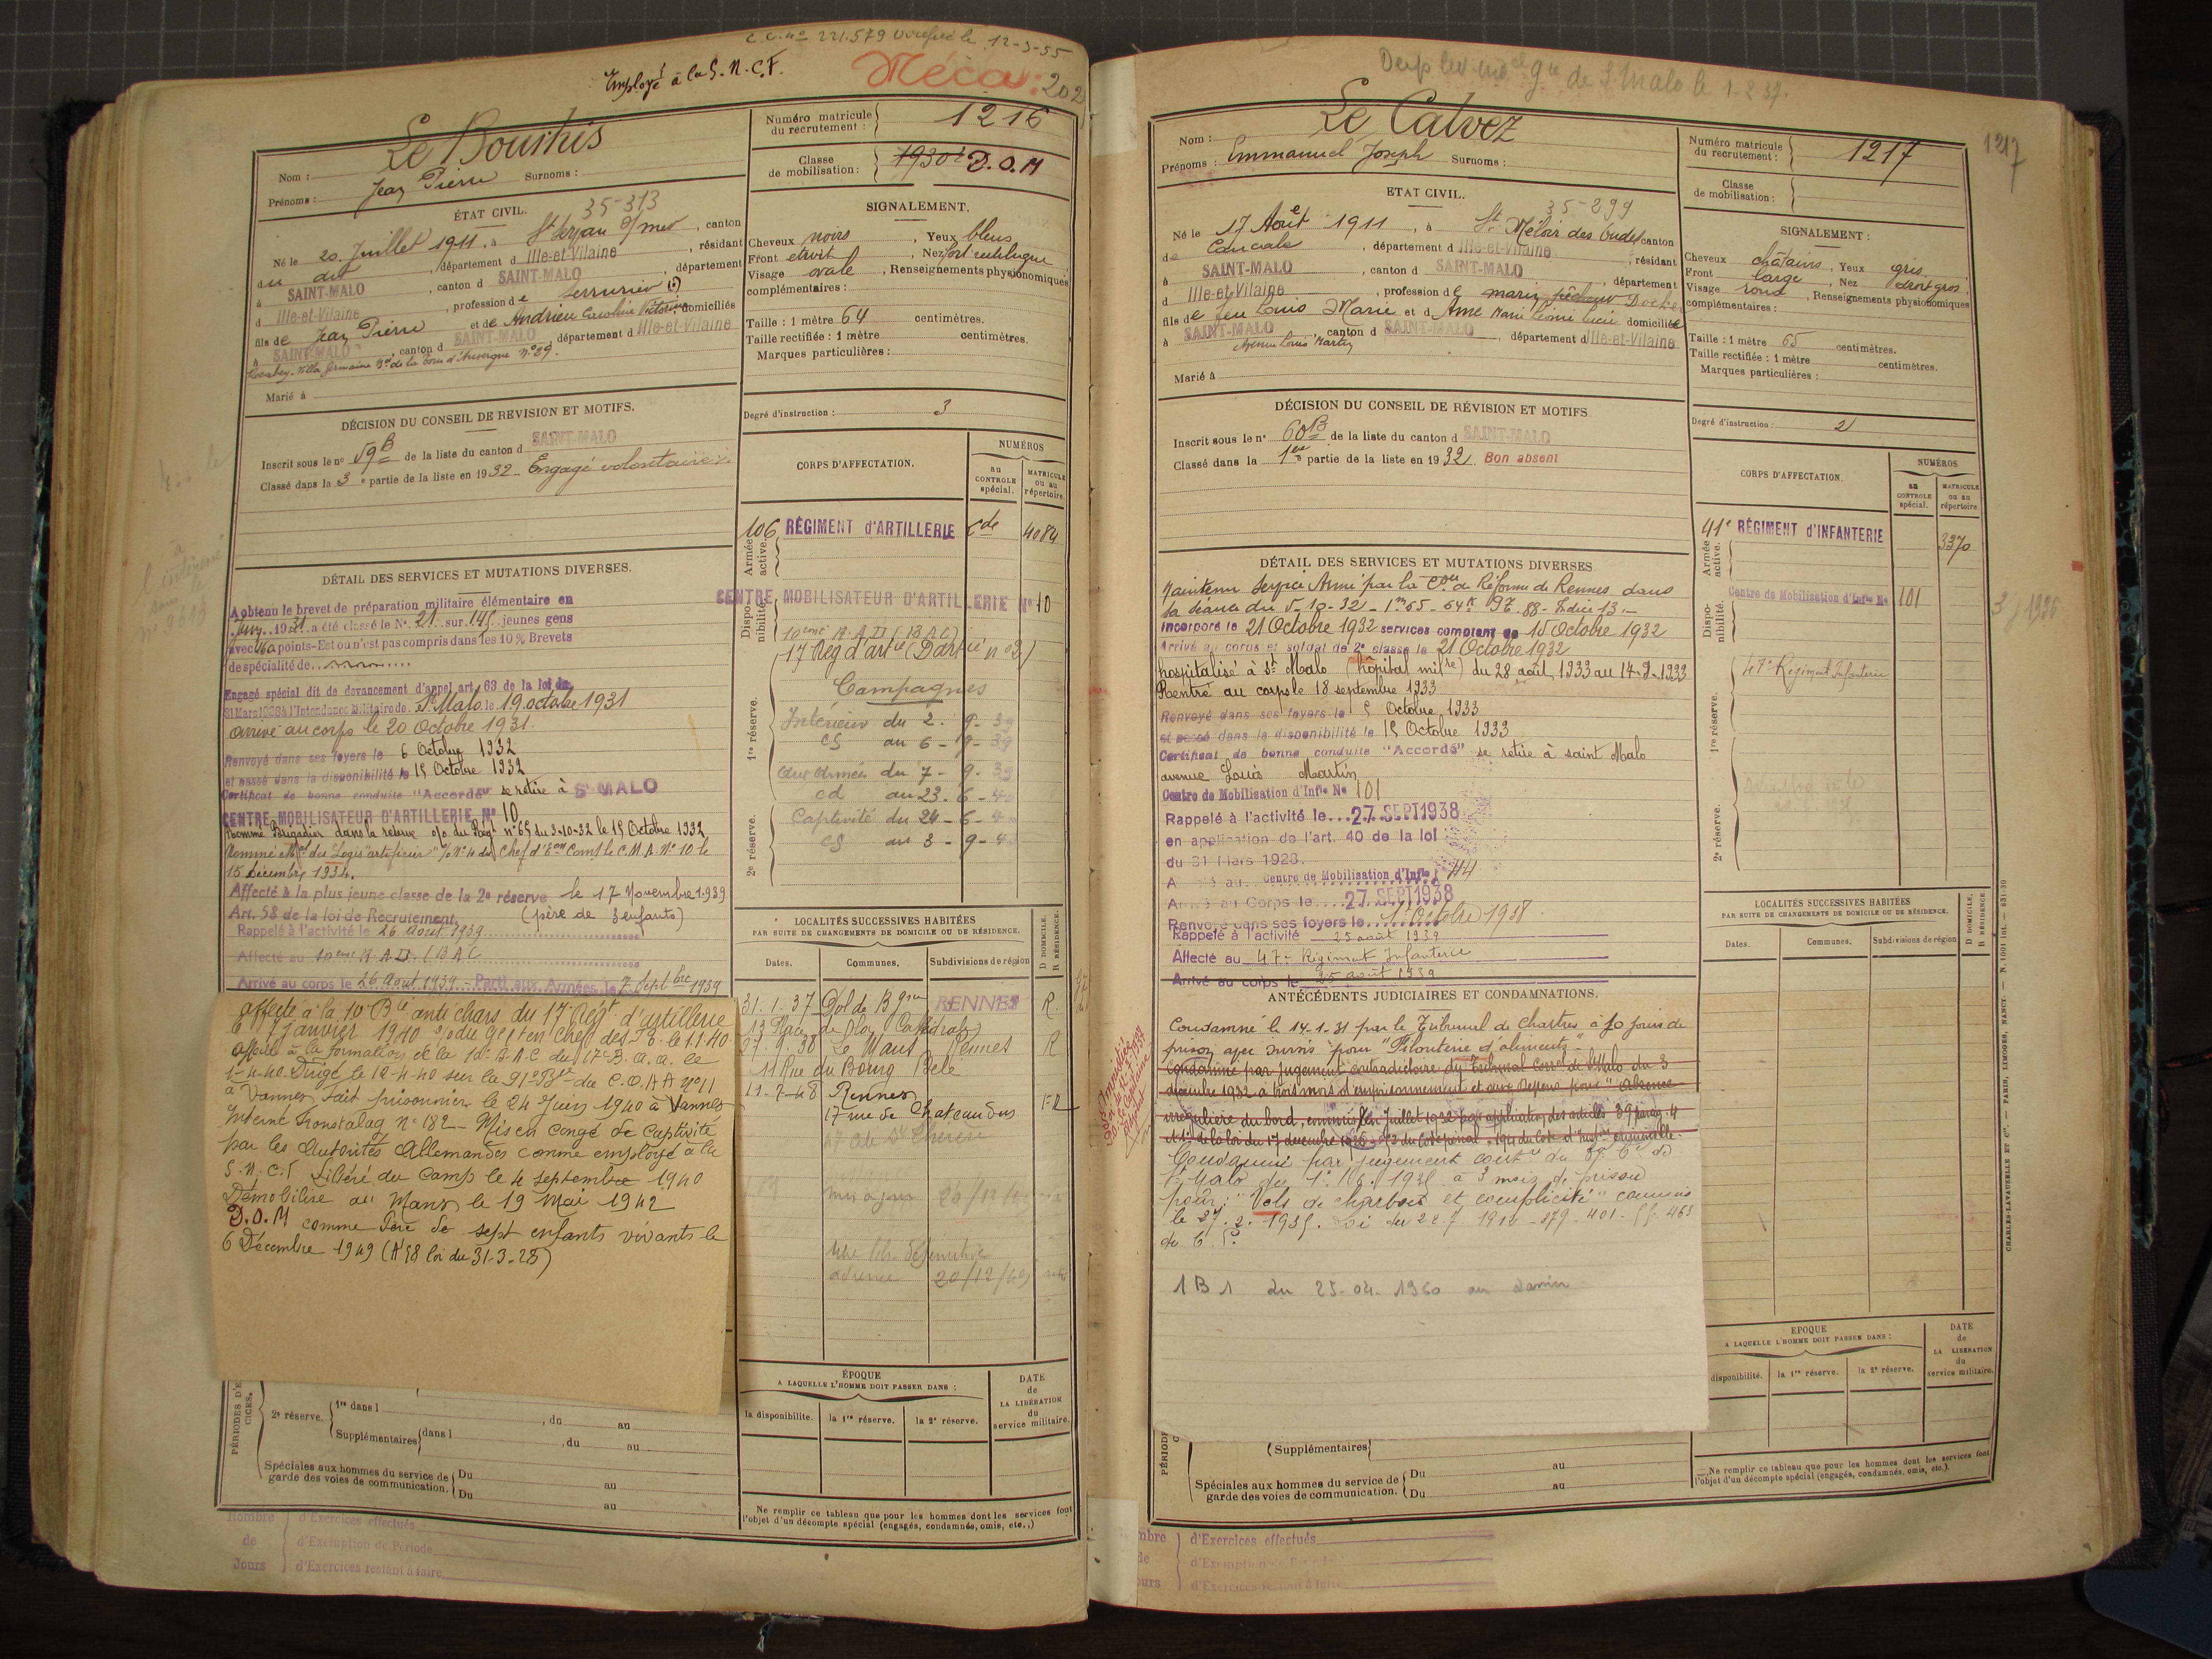 C.C. no 221.579 12-3-55
Employé à la S.N.C.F.
Méca: 202
Le Bourhis
Nom :
Jean Pierre
Prénoms : Surnoms :
ÉTAT CIVIL.
35-313
Né le 20 Juillet 1911, à St Servan s/mer, canton
du dit, département d Ille-et-Vilaine, résidant
à SAINT-MALO, canton d SAINT-MALO, département
d Ille-et-Vilaine, profession de Serrurier
fils de Jean Pierre et de Andrieu Caroline Victorine domiciliés
à SAINT-MALO, canton d SAINT-MALO, département d Ille-et-Vilaine
Rocabey. Villa Germaine Bd de la Tour d'Auvergne n°29.
Marié à
DÉCISION DU CONSEIL DE REVISION ET MOTIFS.
Inscrit sous le n° 59 B de la liste du canton d SAINT-MALO
Classé dans la 3e partie de la liste en 1932. Engagé volontaire
DÉTAIL DES SERVICES ET MUTATIONS DIVERSES.
A obtenu le brevet de préparation militaire élémentaire en
1931 a été classé le N°. 21 sur 145 jeunes gens
avec points-Est ou n'est pas compris dans les 10% Brevets
de spécialité de
Engagé spécial dit de devancement d'appel art. 63 de la loi du
31 Mars 1928 à l'Intendance Militaire de St Malo le 19 octobre 1931
arrivé au corps le 20 Octobre 1931.
Renvoyé dans ses foyers le 6 Octobre 1932
et passé dans la disponibilité le 15 Octobre 1932
Certificat de bonne conduite "Accordé" se retire à St MALO
CENTRE MOBILISATEUR D'ARTILLERIE N° 10
Nommé Brigadier dans la réserve o/o du Régt n°65 du 3-10-32 le 15 Octobre 1932
Nommé Mal des Logis artificier o/o N°4 du Chef d'Eon Comt le C.M.A. N° 10 le
15 Décembre 1934.
Affecté à la plus jeune classe de la 2e réserve le 17 Novembre 1939
Art. 58 de la loi de Recrutement. (père de 3 enfants)
Rappelé à l'activité le 26 Août 1939
Affecté au 10eme R.A.D. (BAC
Arrivé au corps le 26 Août 1939 - Parti aux Armées le 7 Septbre 1939
affecté à la 10e Bie anti chars du 17e Régt d'artillerie
le 7 janvier 1940
affecté à la formation de la 10e B.A.C du 17e
1-4-40. Dirigé le 12-4-40 sur la 91e Bie du C.O.A.A n°11
à Vannes. Fait prisonnier le 24 Juin 1940 à Vannes
Interné Fronstalag N° 182 - Mis en congé de captivité
par les Autorités Allemandes comme employé à la
S.N.C.F. Libéré du Camp le 4 septembre 1940
Démobilisé au Mans le 19 Mai 1942
D.O.M comme Père de sept enfants vivants le
6 Décembre 1949 (At 58 loi du 31-3-28)
PÉRIODES D'E CICES.
2e réserve. 1re dans l , du au
Supplémentaires dans l , du au
Spéciales aux hommes du service de garde des voies de communication. Du au
Du au
Nombre de Jours
d'Exercices effectués
d'Exemption de Période
d'Exercices restant à faire
Numéro matricule du recrutement : 1216
Classe de mobilisation : 1930 D.O.M
SIGNALEMENT.
Cheveux noirs, Yeux bleus
Front étroit, Nez fort rectiligne
Visage ovale, Renseignements physionomiques
complémentaires :
Taille : 1 mètre 64 centimètres.
Taille rectifiée : 1 mètre centimètres.
Marques particulières :
Degré d'instruction : 3
CORPS D'AFFECTATION.
NUMÉROS
au CONTROLE spécial.
MATRICULE ou au répertoire.
Armée active.
106 RÉGIMENT d'ARTILLERIE 4084
Disponibilité.
CENTRE MOBILISATEUR D'ARTILLERIE N° 10
10eme R.A.D (BAC)
17 Rég d'artie (D artie n°2)
1re réserve.
Campagnes
Intérieur du 2. 9. 39
CS au 6 - 9 - 39
aux armées du 7 - 9. 39
cd au 23. 6 - 40
Captivité du 24 - 6 - 40
CS au 3 - 9 - 40
2e réserve.
LOCALITÉS SUCCESSIVES HABITÉES
PAR SUITE DE CHANGEMENTS DE DOMICILE OU DE RÉSIDENCE.
D DOMICILE, R RÉSIDENCE.
Dates. Communes. Subdivisions de région
31.1.37 Dol de Bgne RENNES R.
13 Place de la Cathédrale
27.9.38 Le Mans Rennes R
11 Rue du Bourg Belé
11-7-48 Rennes
17 rue de Chateaudun
mis à jour
adresse 20/12/49
ÉPOQUE
A LAQUELLE L'HOMME DOIT PASSER DANS :
la disponibilité. la 1re réserve. la 2e réserve.
DATE de LA LIBÉRATION du service militaire.
Ne remplir ce tableau que pour les hommes dont les services font
l'objet d'un décompte spécial (engagés, condamnés, omis, etc..)
de St Malo le 1-2-37.
1217
Le Calvez
Nom :
Prénoms : Emmanuel Joseph Surnoms :
ETAT CIVIL.
35-299
Né le 17 Août 1911, à St Méloir des Ondes canton
de Cancale, département d Ille-et-Vilaine, résidant
à SAINT-MALO, canton d SAINT-MALO, département
d Ille-et-Vilaine, profession de marin pêcheur Docker
fils de feu Louis Marie et d Amé Marie Léonie Lucie domiciliée
à SAINT-MALO, canton d SAINT-MALO, département d Ille-et-Vilaine
Avenue Louis Martin
Marié à
DÉCISION DU CONSEIL DE RÉVISION ET MOTIFS
Inscrit sous le n° 60 B de la liste du canton d SAINT-MALO
Classé dans la 1ere partie de la liste en 1932. Bon absent
DÉTAIL DES SERVICES ET MUTATIONS DIVERSES
Maintenu Service Armé par la Con de Réforme de Rennes dans
sa séance du 5-10-32 - 1m65 - 64k Indice 13
Incorporé le 21 Octobre 1932 services comptant du 15 Octobre 1932
Arrivé au corps et soldat de 2e classe le 21 Octobre 1932
hospitalisé à St Malo (hôpital milre) du 28 août 1933 au 17-9-1933
Rentré au corps le 18 septembre 1933
Renvoyé dans ses foyers le 5 Octobre 1933
et passé dans la disponibilité le 15 Octobre 1933
Certificat de bonne conduite "Accordé" se retire à saint Malo
avenue Louis Martin
Centre de Mobilisation d'Infie No 101
Rappelé à l'activité le 27 SEPT 1938
en application de l'art. 40 de la loi
du 31 Mars 1928.
A au Centre de Mobilisation d'Infie 114
Arrivé au Corps le 27 SEPT 1938
Renvoyé dans ses foyers le 1er Octobre 1938
Rappelé à l'activité 25 août 1939
Affecté au 47e Régiment Infanterie
Arrivé au corps le 25 août 1939
ANTÉCÉDENTS JUDICIAIRES ET CONDAMNATIONS.
Condamné le 14-1-31 par le Tribunal de Chartres à 10 jours de
prison avec sursis pour "Filouterie d'aliments"
Condamné par jugement contradictoire du Tribunal Correl de St Malo du 3
décembre 1932 à trois mois d'emprisonnement et aux dépens pour "absence
irrégulière du bord, commis le Juillet 1932 par application des articles 39 parag. 4
de la loi du 17 décembre 1926
Condamné par jugement du
St Malo du 1935 à 3 mois de prison
pour: "Vols de charbon et complicité" commis
le 27.2.1935. 379 - 401 - 463
du C.P.
1B1 du 25-04-1960
Supplémentaires
Spéciales aux hommes du service de garde des voies de communication. Du au
Du au
d'Exercices effectués
Numéro matricule du recrutement : 1217
Classe de mobilisation :
SIGNALEMENT :
Cheveux châtains, Yeux gris
Front large, Nez droit gros
Visage rond, Renseignements physionomiques
complémentaires :
Taille : 1 mètre 65 centimètres.
Taille rectifiée : 1 mètre centimètres.
Marques particulières :
Degré d'instruction : 2
CORPS D'AFFECTATION.
NUMÉROS
au CONTROLE spécial.
MATRICULE ou au répertoire.
Armée active.
41e RÉGIMENT d'INFANTERIE 3370
Disponibilité.
Centre de Mobilisation d'Infie No 101
1re réserve.
47e Régiment Infanterie
2e réserve.
LOCALITÉS SUCCESSIVES HABITÉES
PAR SUITE DE CHANGEMENTS DE DOMICILE OU DE RÉSIDENCE.
D DOMICILE, R RÉSIDENCE.
Dates. Communes. Subdivisions de région
EPOQUE
A LAQUELLE L'HOMME DOIT PASSER DANS :
disponibilité. la 1re réserve. la 2e réserve.
DATE de LA LIBÉRATION du service militaire.
Ne remplir ce tableau que pour les hommes dont les services font
l'objet d'un décompte spécial (engagés, condamnés, omis, etc.).
CHARLES-LAVAUZELLE ET Cie. — PARIS, LIMOGES, NANCY. — N. 1001 int. — 831-30